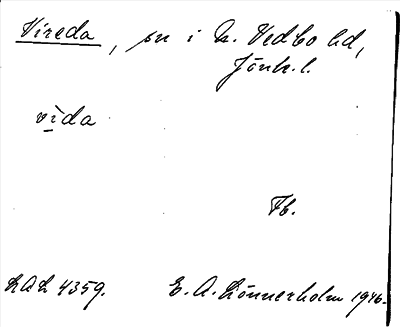 Vireda, sn i N. Vedbo hd,
Jönk. l.
vìda
Fb.
LAL 4359. E. A. Lönnerholm 1946.